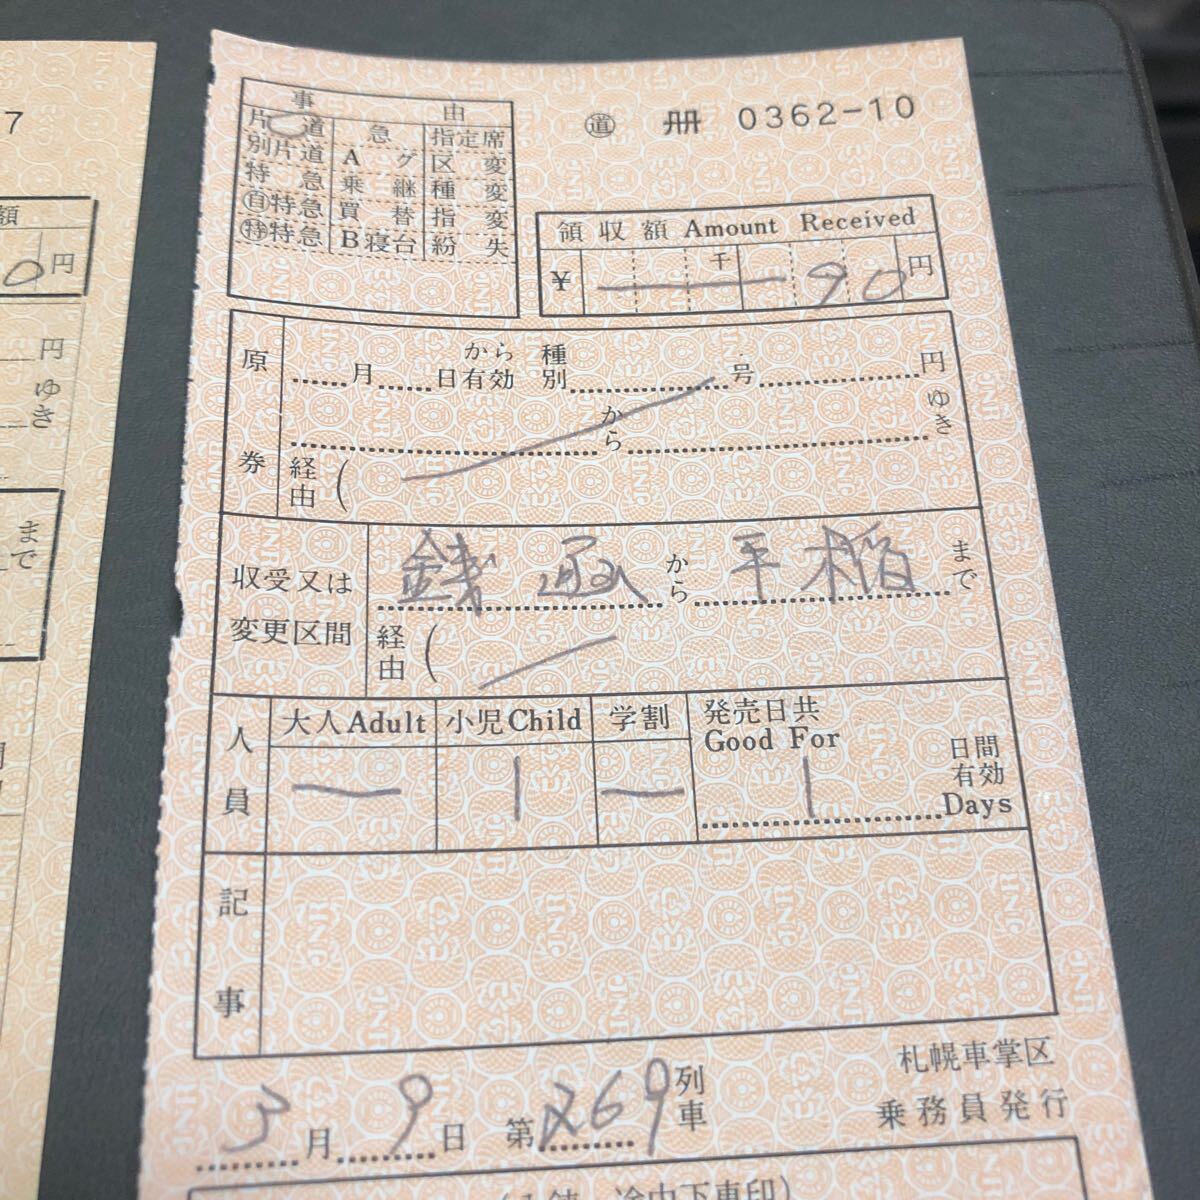 事 由
片道 急 指定席
別片道 Aグ 区変
特急 乗継 種変
自特急 買替 指変
特特急 B寝台 紛失
道 冊 0362-10
領収額 Amount Received
¥ 千 90円
原券
月 日 から有効 種別 号 円
から ゆき
経由(
収受又は変更区間
銭函 から 手稲 まで
経由(
人員 大人Adult 小児Child 学割 発売日共 Good For 日間有効 Days
— 1 — 1
記事
3月9日 第269列車
札幌車掌区
乗務員発行
途中下車印)
7
額
0円
円
ゆき
まで